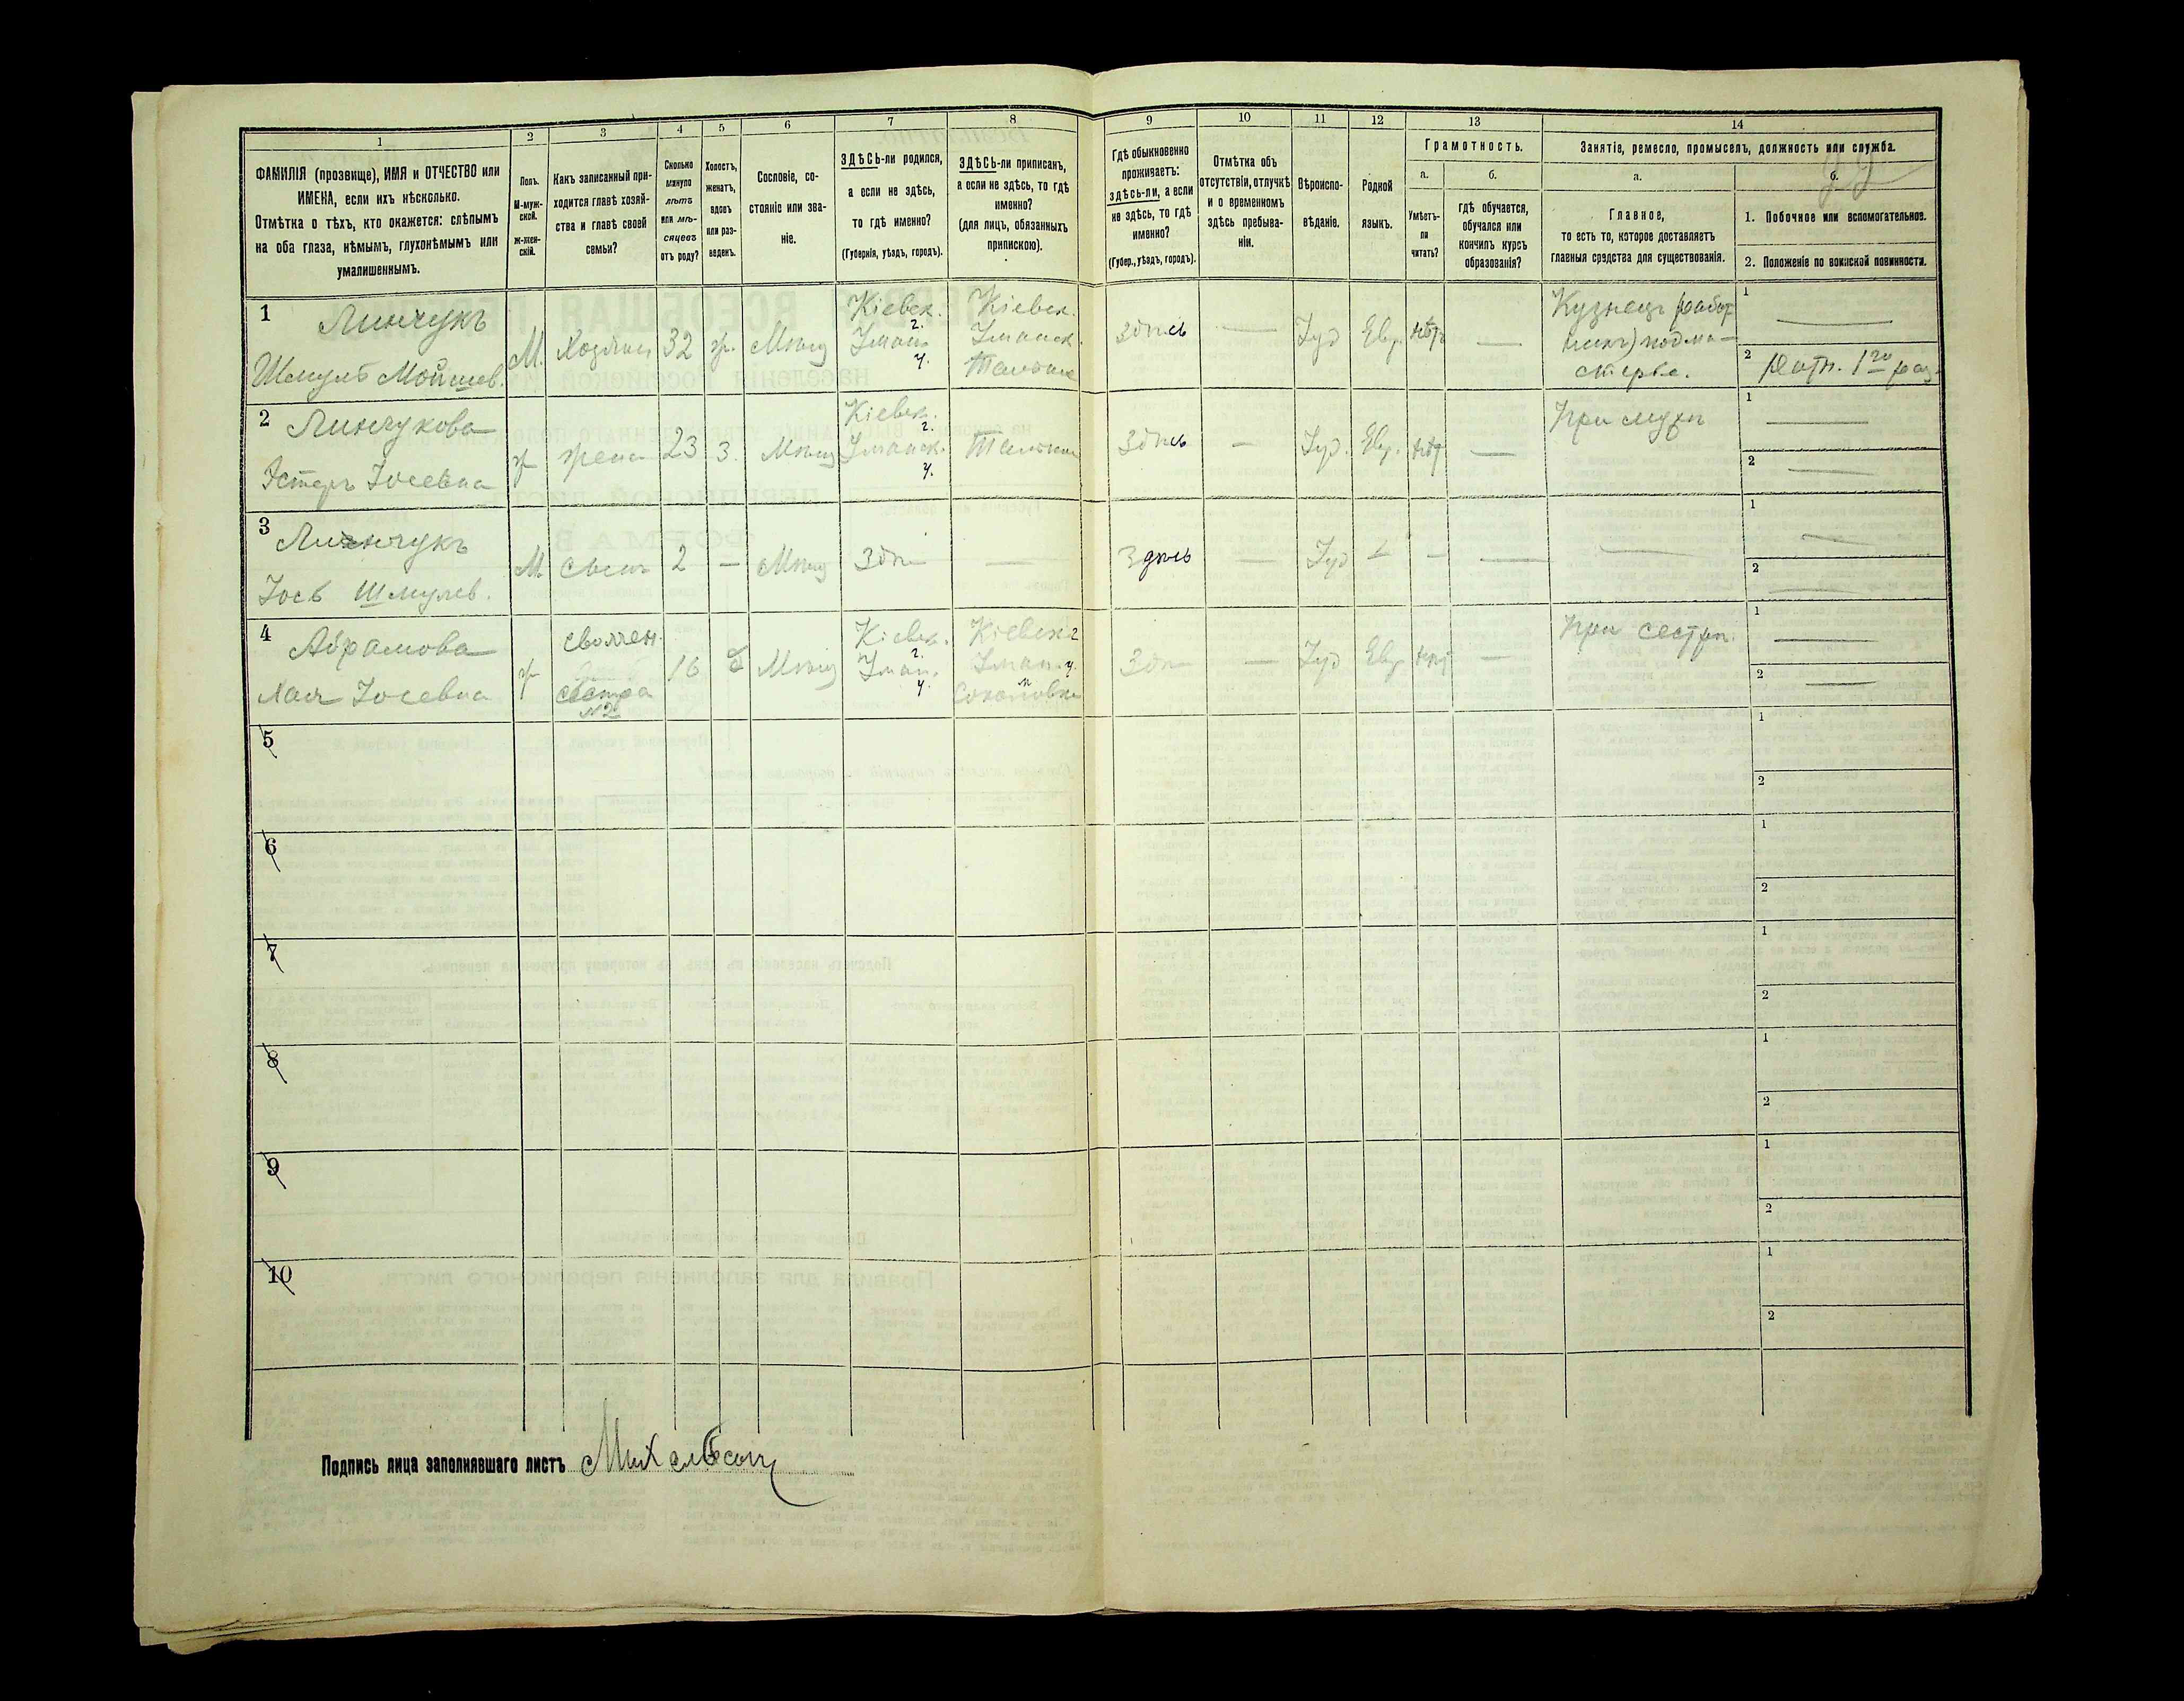 1
2
3
4
5
6
7
8
9
10
11
12
13
14
ФАМИЛІЯ (прозвище), ИМЯ и ОТЧЕСТВО или
ИМЕНА, если ихъ нѣсколько.
Отмѣтка о тѣхъ, кто окажется: слѣпымъ
на оба глаза, нѣмымъ, глухонѣмымъ или
умалишеннымъ.
Полъ.
М-муж-
ской.
Ж-жен-
скій.
Какъ записанный при-
ходится главѣ хозяй-
ства и главѣ своей
семьи?
Сколько
минуло
лѣтъ
или мѣ-
сяцевъ
отъ роду?
Холостъ,
женатъ,
вдовъ
или раз-
веденъ.
Сословіе, со-
стояніе или зва-
ніе.
ЗДѢСЬ-ли родился,
а если не здѣсь,
то гдѣ именно?
(Губернія, уѣздъ, городъ).
ЗДѢСЬ-ли приписанъ,
а если не здѣсь, то гдѣ
именно?
(для лицъ, обязанныхъ
припискою).
Гдѣ обыкновенно
проживаетъ:
здѣсь-ли, а если
не здѣсь, то гдѣ
именно?
(Губер., уѣздъ, городъ).
Отмѣтка объ
отсутствіи, отлучкѣ
и о временномъ
здѣсь пребыва-
ніи.
Вѣроиспо-
вѣданіе.
Родной
языкъ.
Грамотность.
а.
Умѣетъ-
ли
читать?
б.
гдѣ обучается,
обучался или
кончилъ курсъ
образованія?
Занятіе, ремесло, промыселъ, должность или служба.
а.
Главное,
то есть то, которое доставляетъ
главныя средства для существованія.
б.
1. Побочное или вспомогательное.
2. Положеніе по воинской повинности.
1 Линчукъ
Шмуль Мойшев.
М.
Хозяинъ
32
ж.
Мѣщ
Кіевск.
г.
Уман.
у.
Кіевск.
Уманск.
Тальное
Здѣсь
—
Іуд
Евр.
нѣтъ
—
Кузнецъ (работ
никъ) подма-
стерье.
1 —
2 Ратн. 1го раз.
2 Линчукова
Эстеръ Іосевна
ж
жена
23
З.
Мѣщ
Кіевск.
г.
Уманск.
у.
Тальное
Здѣсь
—
Іуд.
Евр.
нѣт
—
При мужѣ
1 —
2 —
3 Линчукъ
Іось Шмулев.
М.
сынъ
2
—
Мѣщ
Здѣ
—
Здѣсь
—
Іуд
—
—
—
—
1 —
2 —
4 Абрамова
Хая Іосевна
ж
своячен.
сестра
№2
16
Мѣщ
Кіевск.
г.
Уман.
у.
Кіевск г
Уман. у.
м
Соколовка
Здѣ
—
Іуд
Евр
нѣт
—
При сестрѣ.
1 —
2 —
5
1
2
6
1
2
7
1
2
8
1
2
9
1
2
10
1
2
Подпись лица заполнявшаго листъ Михельсонъ